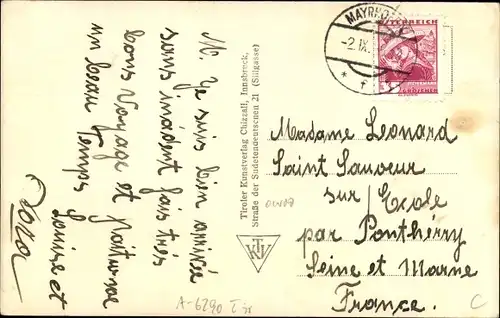 N. Je suis bien arrivée
sans incident fais très
bons voyage et
un beau Temps
Louise et
MAYRHOFEN
-2.IX.
ÖSTERREICH
GROSCHEN
Tiroler Kunstverlag Chizzali, Innsbruck,
Straße der Sudetendeutschen 21 (Sillgasse)
TKV
Madame Leonard
Saint Sauveur
sur Ecole
par Ponthierry
Seine et Marne
France.
A-6290
C